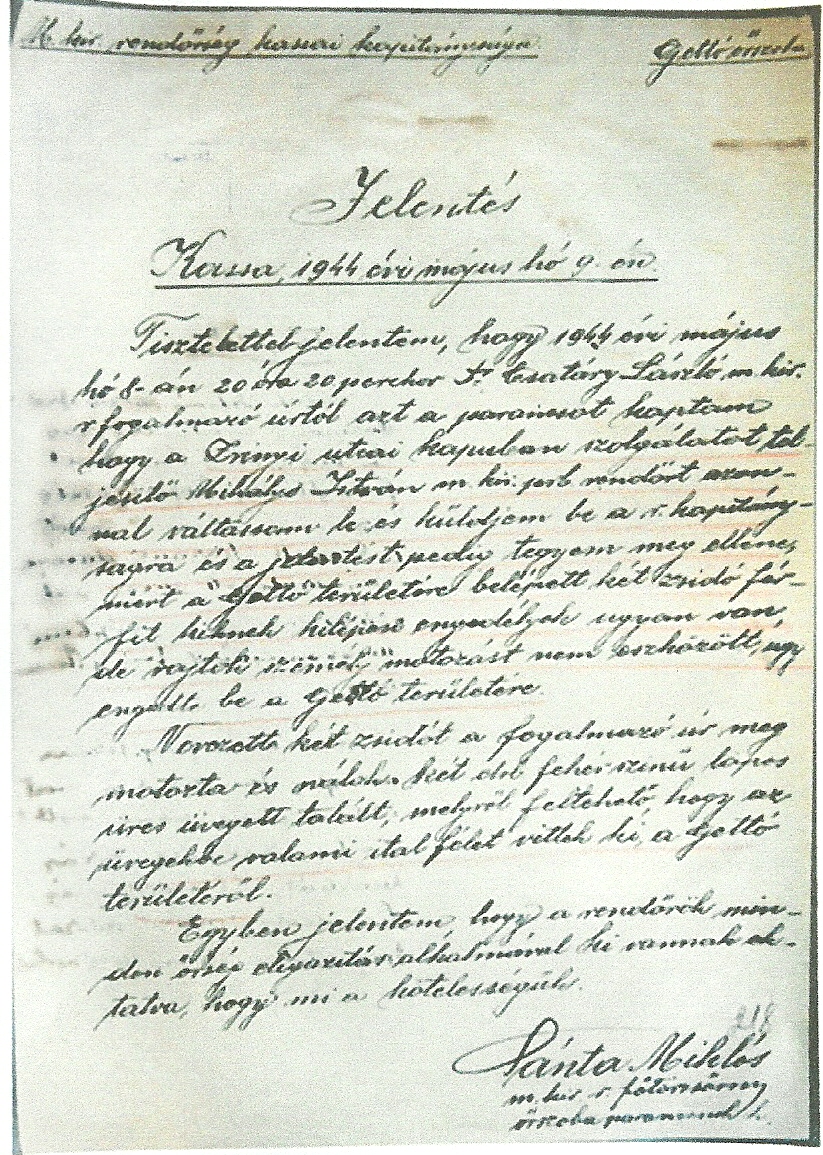 M. kir. rendőrség kassai kapitánysága. Gettó őrszoba
Jelentés
Kassa, 1944 évi május hó 9. én.
Tisztelettel jelentem, hogy 1944 évi május
hó 8-án 20 óra 20 perckor Dr Csatáry László m. kir.
r. fogalmazó úrtól azt a parancsot kaptam
hogy a Zrinyi utcai kapuban szolgálatot tel-
jesitő Mihályi István m. kir. prb rendőrt azon-
nal váltassam le és küldjem be a r. kapitány-
ságra és a jelentést pedig tegyem meg ellene,
mert a Gettó területére belépett két zsidó fér-
fit kiknek kilépési engedélyek ugyan van
de rajtok személy motozást nem eszközölt, úgy
engedte be a Gettó területére.
Nevezett két zsidót a fogalmazó úr meg
motozta és nálok két dl fehér szinü lapos
üres üvegett talált, melyről feltehető, hogy az
üvegekbe valami ital félét vittek ki, a Gettó
területéről.
Egyben jelentem hogy a rendőrök min-
den őrség eligazitás alkalmával ki vannak ok-
tatva, hogy mi a kötelességük.
Sánta Miklós
m. kir. r. főtörzsőrm
őrszoba parancsnok h.